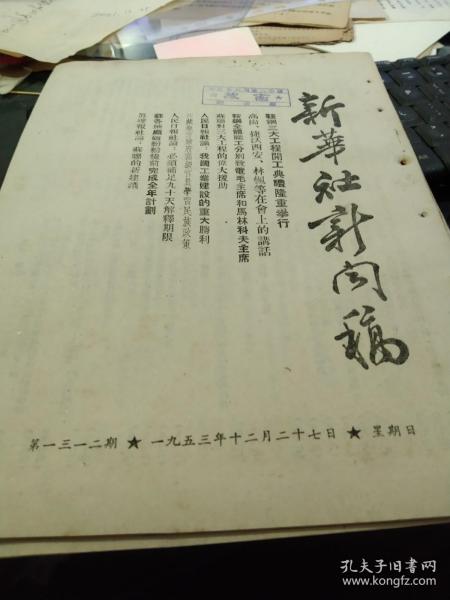 新華社新聞稿
鞍鋼三大工程開工典禮隆重舉行
高崗、捷沃西安、林楓等在會上的講話
鞍鋼全體職工分別致電毛主席和馬林科夫主席
蘇聯對三大工程的偉大援助
人民日報社論：我國工業建設的重大勝利
人民日報社論：必須補足九十天解釋期限
蘇各地廠礦紛紛提前完成全年計劃
真理報社論：蘇聯的新建議
第一三一二期 ★ 一九五三年十二月二十七日 ★ 星期日
孔夫子旧书网
www.kongfz.com